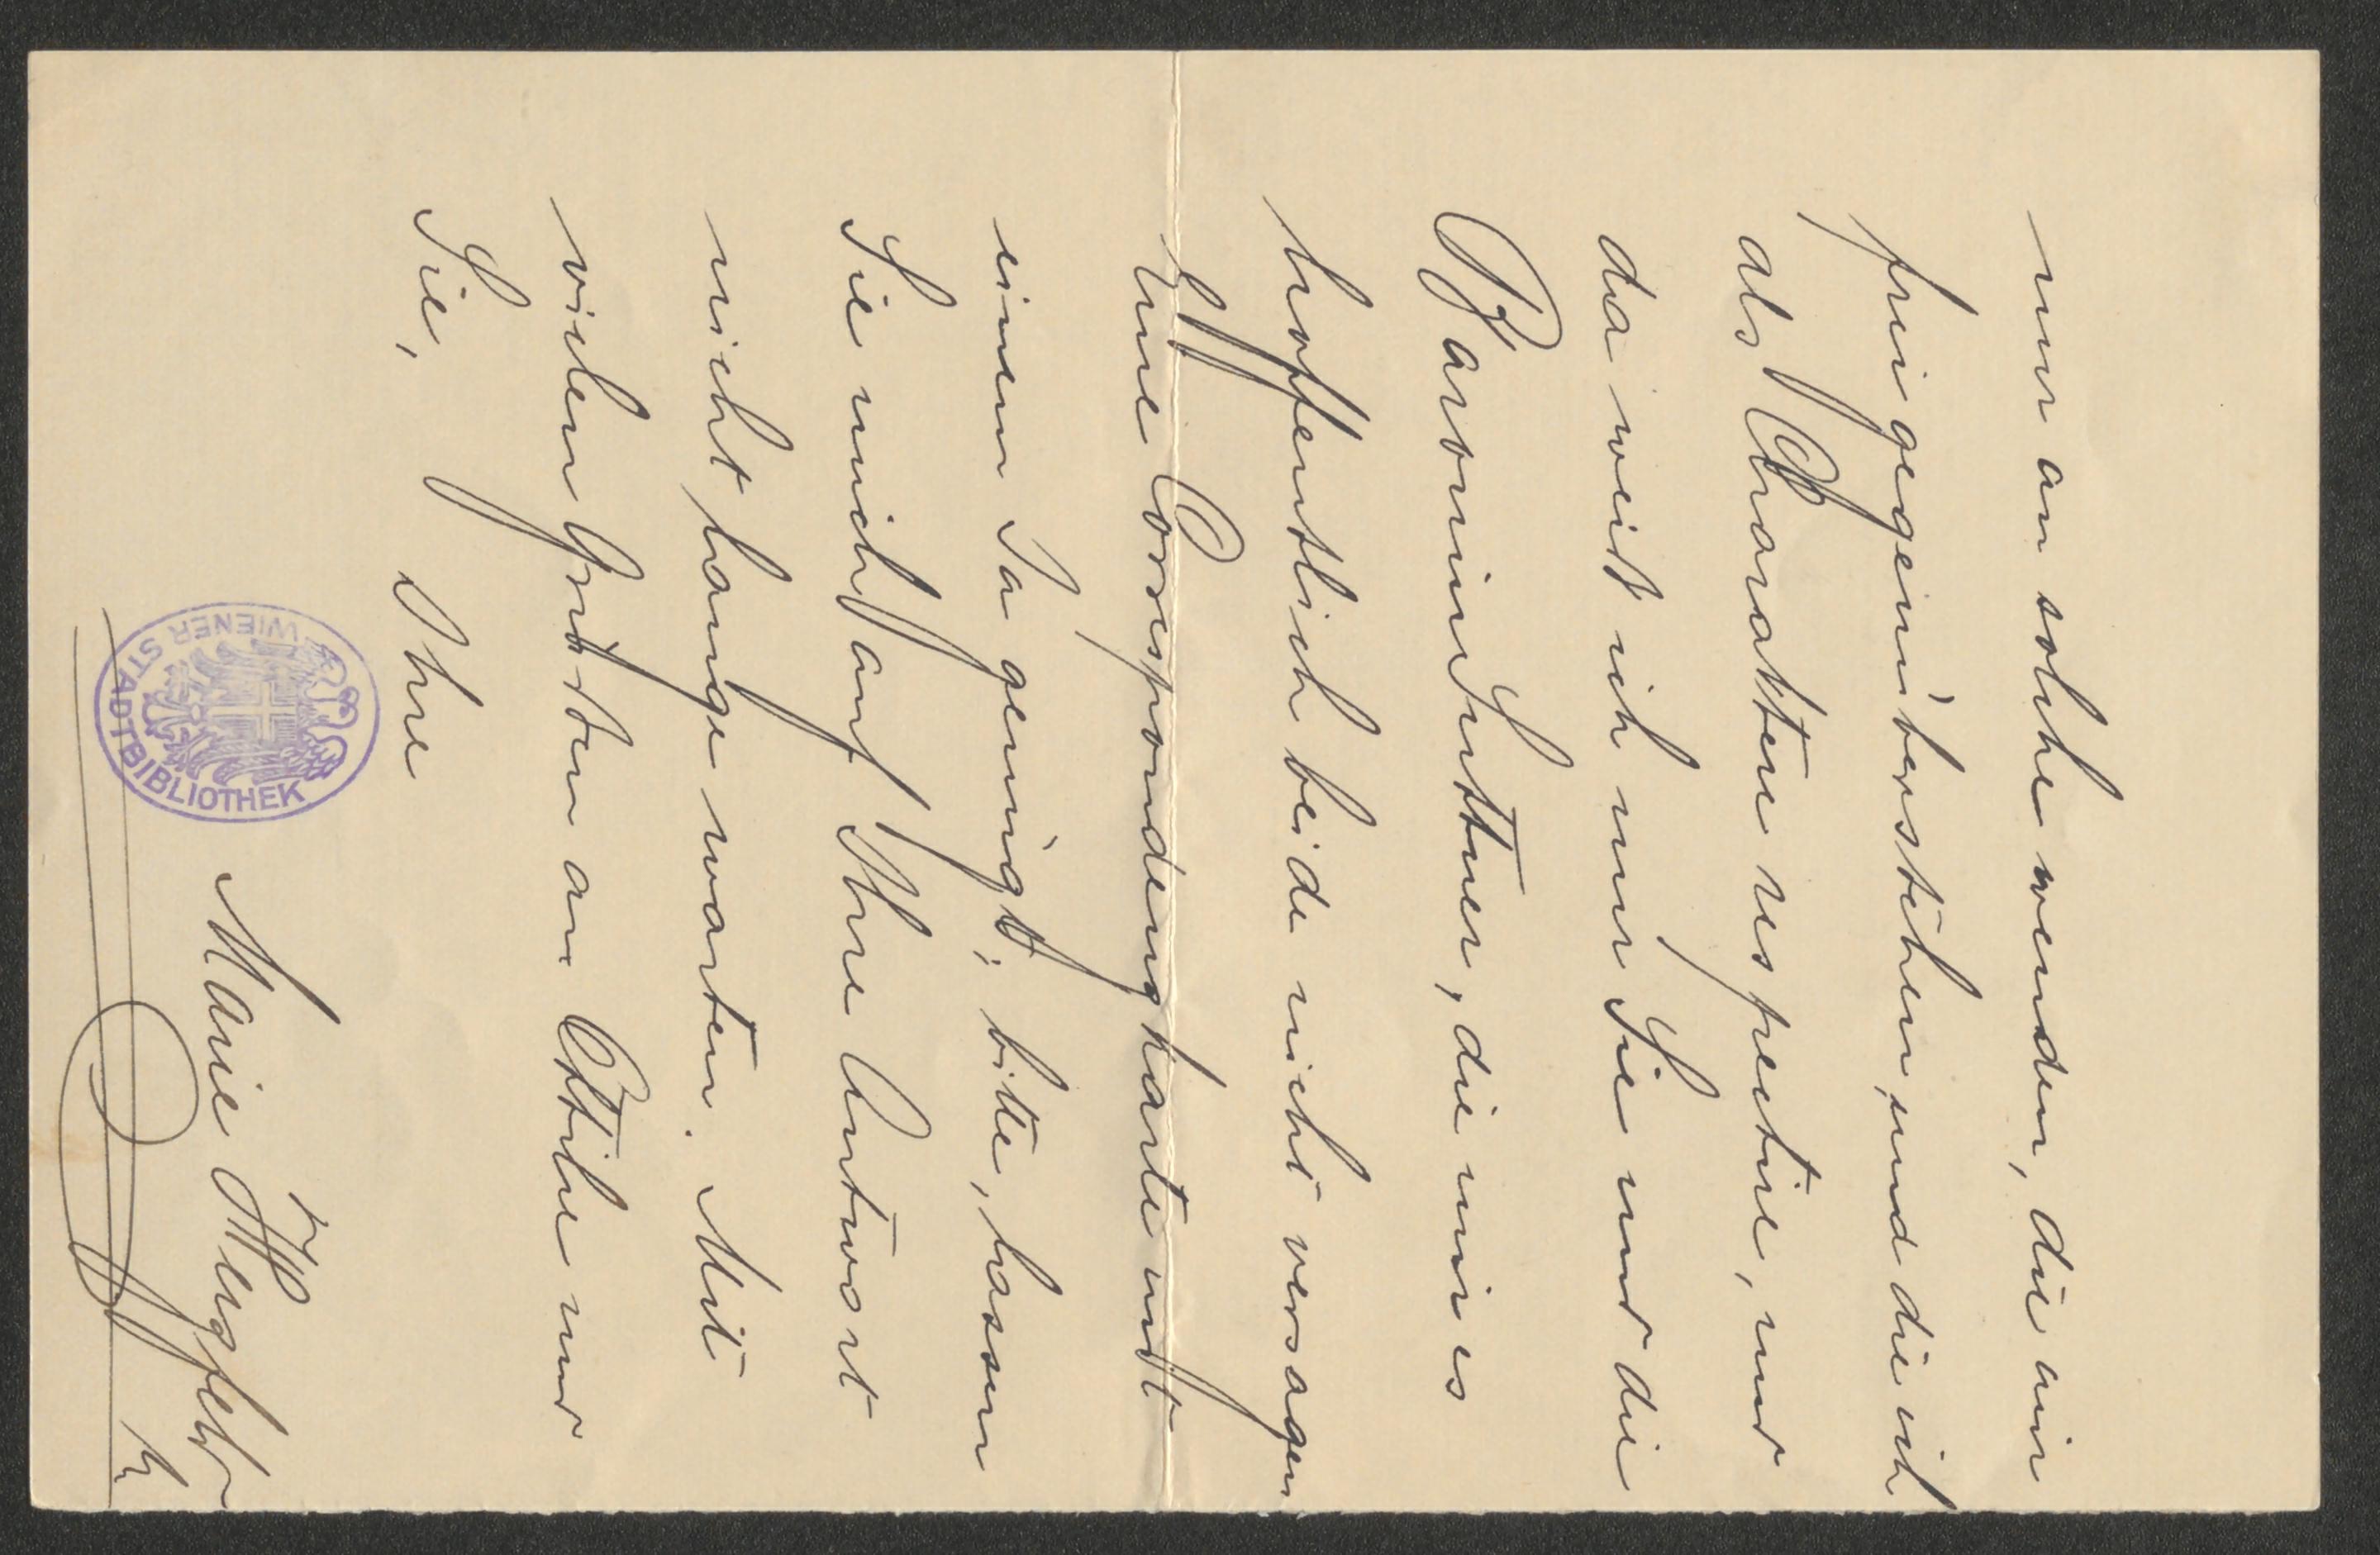 nur an solche wenden, die mir
frei gegenüberstehen, und die ich
als Charaktere respectire, und
da weiß ich nur Sie und die
Baronin Suttner, die mir es
hoffentlich beide nicht versagen
Eine Correspondenzkarte mit
einem Ja genügt; bitte, lassen
Sie mich auf Ihre Antwort
nicht lange warten. Mit
vielen Grüßen an Ottilie und
Sie,
Ihre
Marie Herzfeld
WIENER STADTBIBLIOTHEK